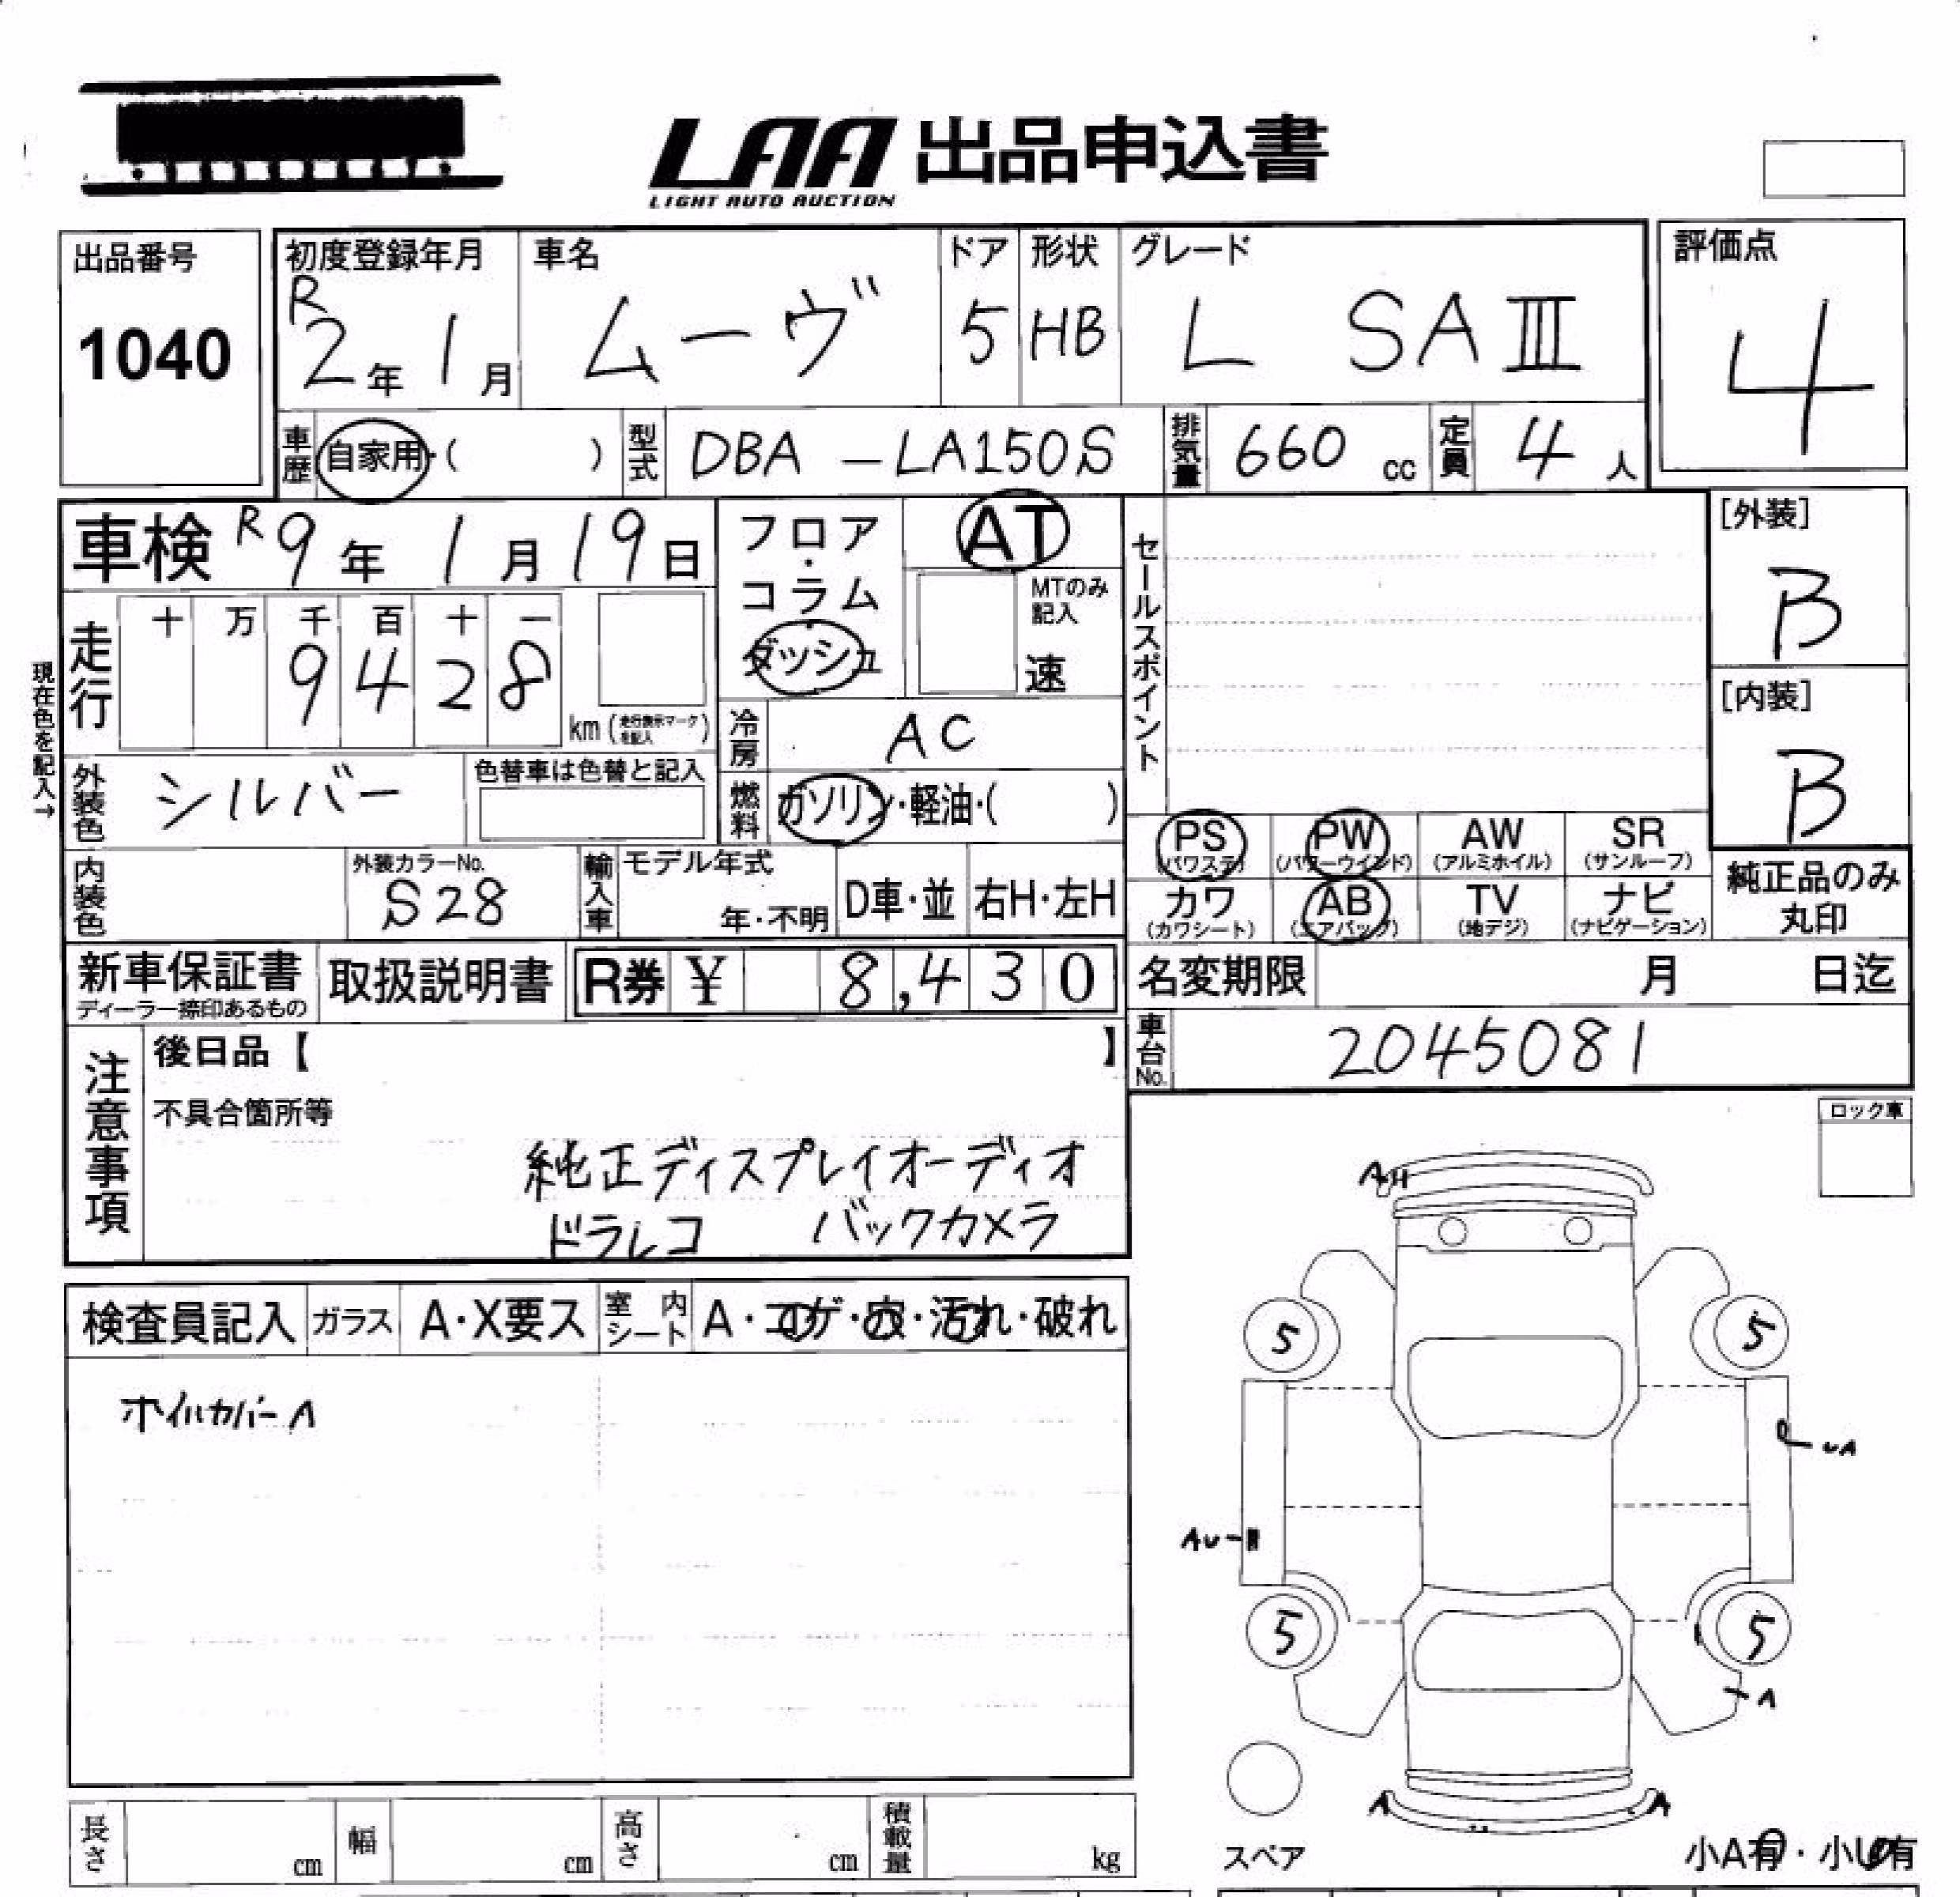 LAA 出品申込書
LIGHT AUTO AUCTION
出品番号
1040
初度登録年月
R2年 1月
車名
ムーヴ
ドア
5
形状
HB
グレード
L SAⅢ
評価点
4
車歴 自家用・( )
型式 DBA-LA150S
排気量 660 cc
定員 4 人
車検 R9年 1月 19日
フロア・コラム・ダッシュ
AT
MTのみ記入
速
セールスポイント
[外装]
B
[内装]
B
現在色を記入→
走行 十 万 千 百 十 一
9 4 2 8
km (走行表示マークを記入)
冷房 AC
外装色 シルバー
色替車は色替と記入
燃料 ガソリン・軽油・( )
PS (パワステ)
PW (パワーウインド)
AW (アルミホイル)
SR (サンルーフ)
内装色
外装カラーNo.
S28
輸入車
モデル年式
年・不明
D車・並
右H・左H
カワ (カワシート)
AB (エアバッグ)
TV (地デジ)
ナビ (ナビゲーション)
純正品のみ丸印
新車保証書
ディーラー捺印あるもの
取扱説明書
R券 ¥ 8,430
名変期限 月 日迄
車台No. 2045081
注意事項
後日品【 】
不具合箇所等
純正ディスプレイオーディオ
ドラレコ バックカメラ
ロック車
検査員記入
ガラス A・X要ス
室内シート A・コゲ・穴・汚れ・破れ
ホイルカバーA
5
5
UA
AU
5
5
A
A
A
スペア
小A有・小U有
長さ cm
幅 cm
高さ cm
積載量 kg